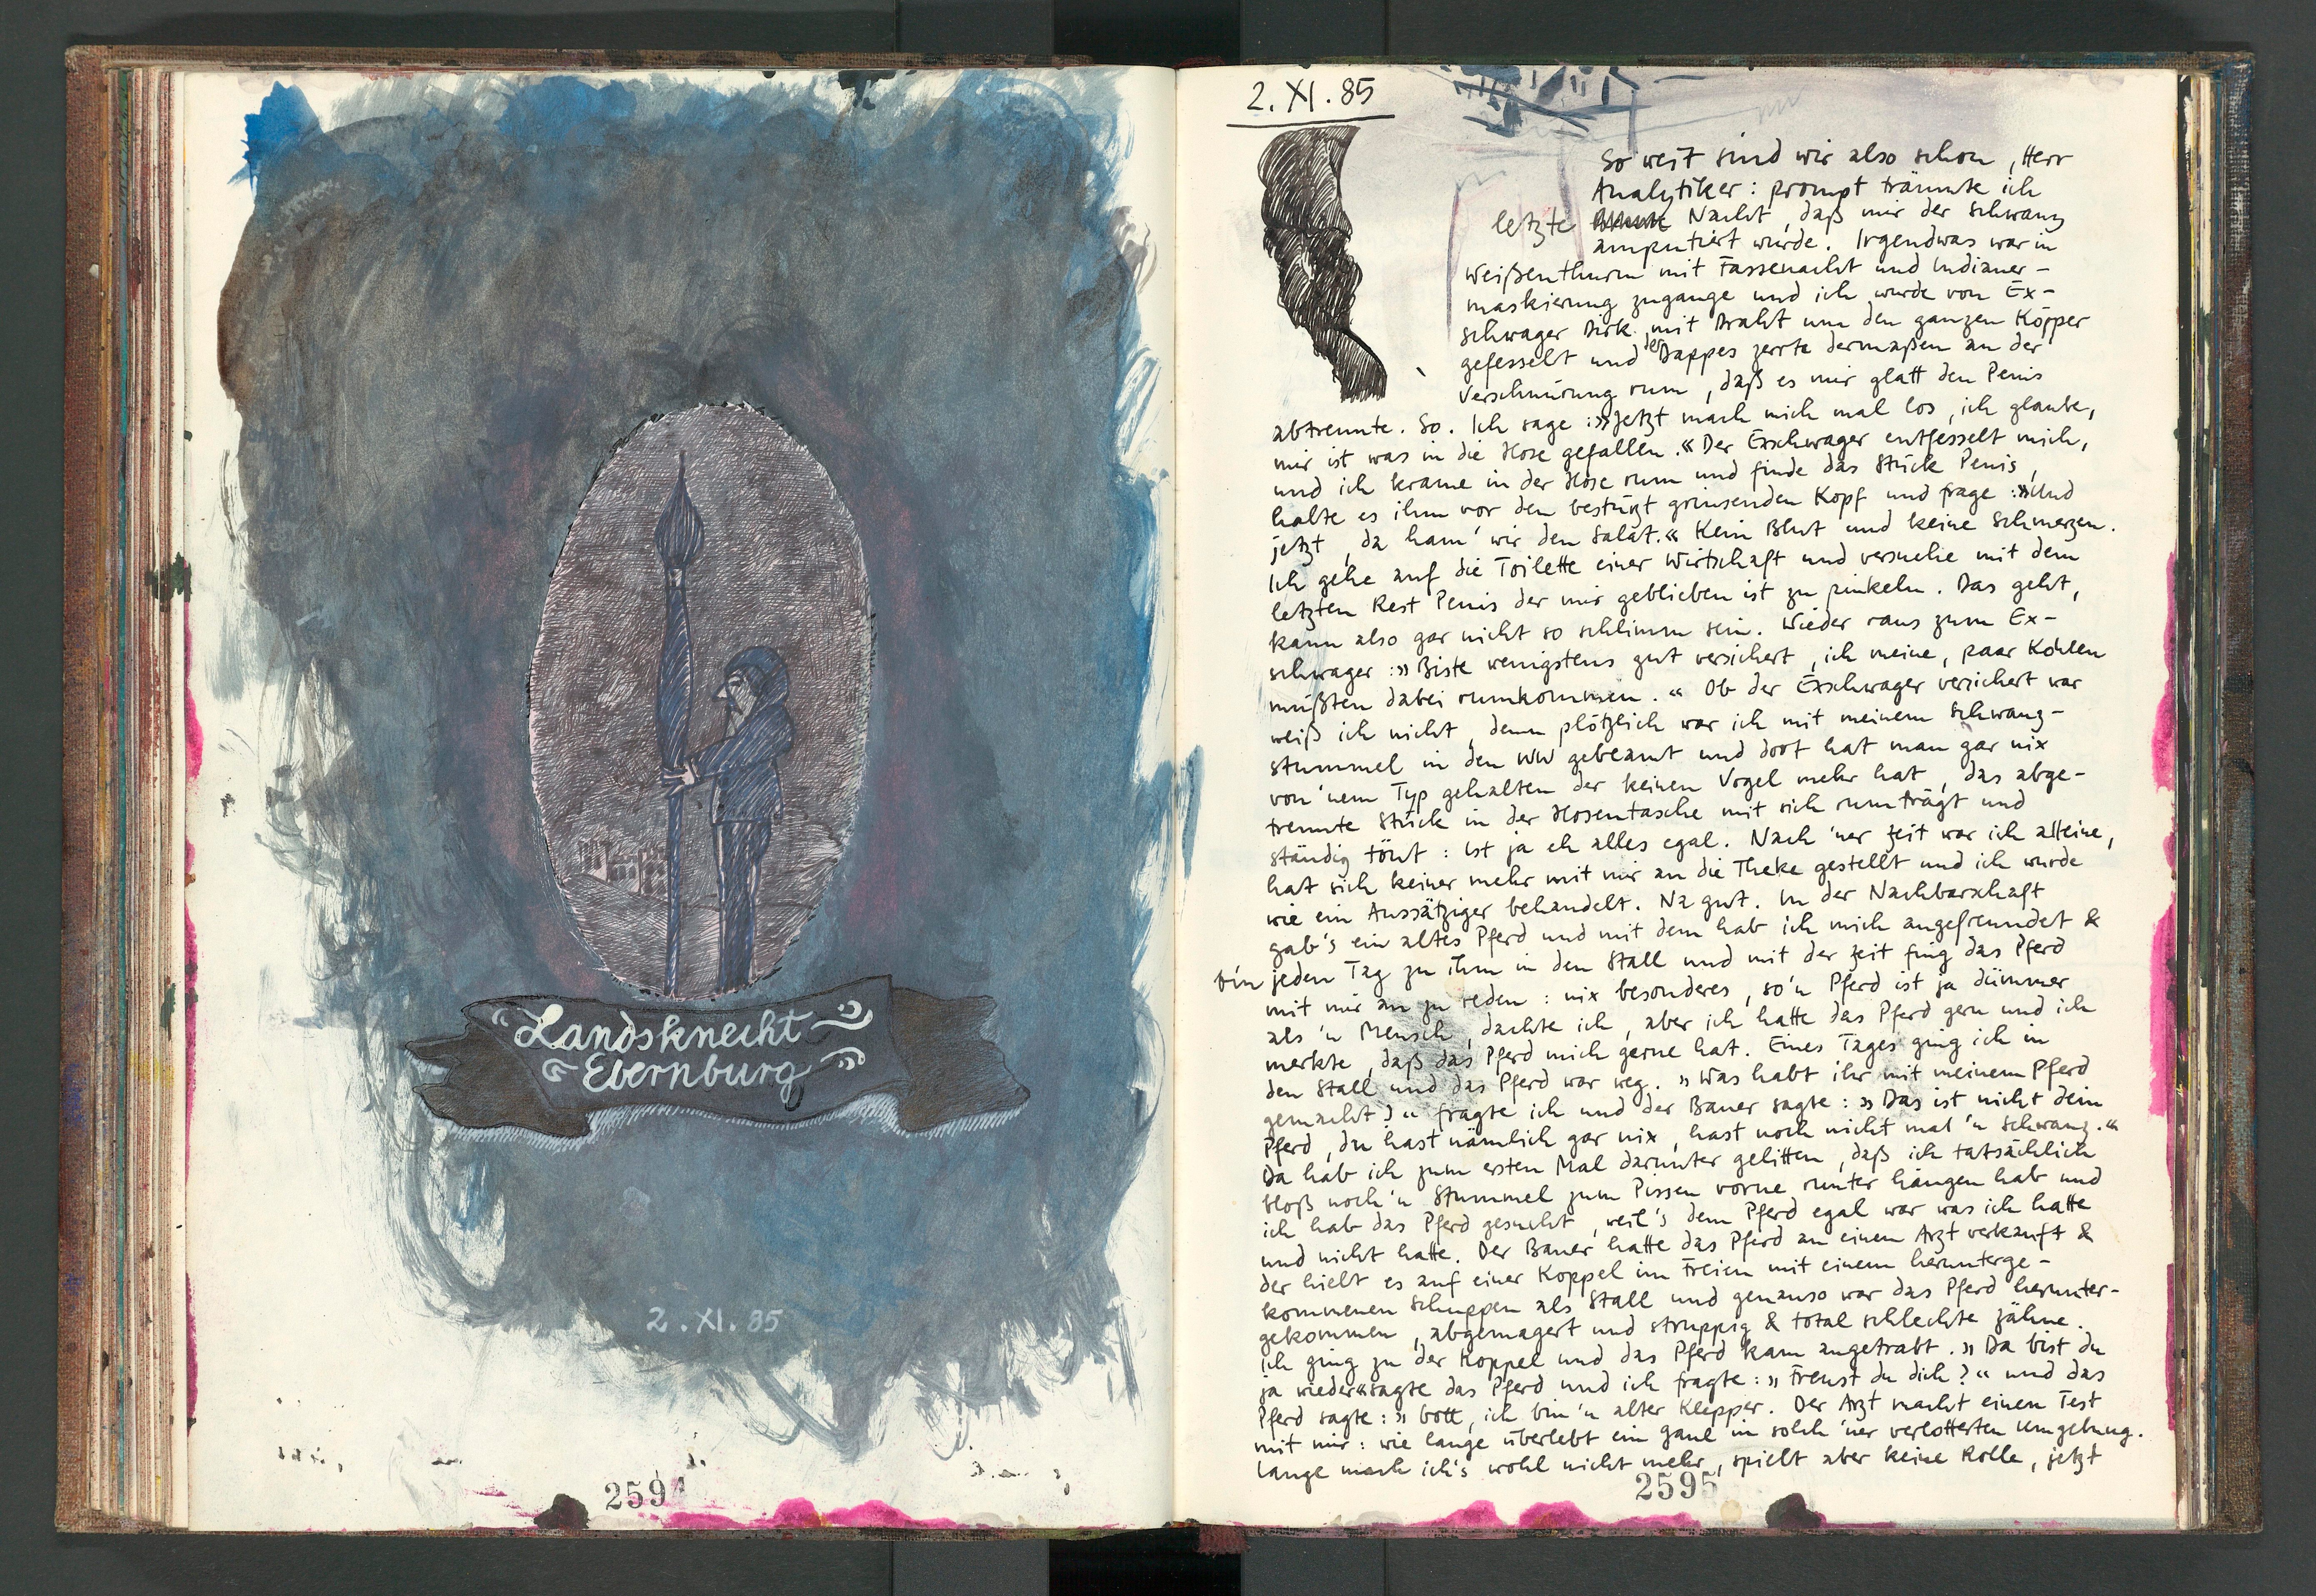 Landsknecht
Ebernburg
2.XI.85
2594
2.XI.85
So weit sind wir also schon, Herr
Analytiker: prompt träumte ich
letzte Nacht, daß mir der Schwanz
amputiert wurde. Irgendwas war in
Weißenthurm mit Fassenacht und Indianer-
maskierung zugange und ich wurde von Ex-
schwager Dirk mit Draht um den ganzen Köpper
gefesselt und der Dappes zerrte dermaßen an der
Verschnürung rum, daß es mir glatt den Penis
abtrennte. So. Ich sage: »Jetzt mach mich mal los, ich glaube,
mir ist was in die Hose gefallen.« Der Exschwager entfesselt mich,
und ich krame in der Hose rum und finde das Stück Penis,
halte es ihm vor den bestürzt grinsenden Kopf und frage: »Und
jetzt, da ham' wir den Salat.« Kein Blut und keine Schmerzen.
Ich gehe auf die Toilette einer Wirtschaft und versuche mit dem
letzten Rest Penis der mir geblieben ist zu pinkeln. Das geht,
kann also gar nicht so schlimm sein. Wieder raus zum Ex-
schwager: »Biste wenigstens gut versichert, ich meine, paar Kohlen
müßten dabei rumkommen.« Ob der Exschwager versichert war
weiß ich nicht, denn plötzlich war ich mit meinem Schwanz-
stummel in den WW gebeamt und dort hat man gar nix
von 'nem Typ gehalten der keinen Vogel mehr hat, das abge-
trennte Stück in der Hosentasche mit sich rumträgt und
ständig tönt: Ist ja eh alles egal. Nach 'ner Zeit war ich alleine,
hat sich keiner mehr mit mir an die Theke gestellt und ich wurde
wie ein Aussätziger behandelt. Na gut. In der Nachbarschaft
gab's ein altes Pferd und mit dem hab ich mich angefreundet &
bin jeden Tag zu ihm in den Stall und mit der Zeit fing das Pferd
mit mir an zu reden: nix besonderes, so'n Pferd ist ja dümmer
als 'n Mensch, dachte ich, aber ich hatte das Pferd gern und ich
merkte, daß das Pferd mich gerne hat. Eines Tages ging ich in
den Stall und das Pferd war weg. »Was habt ihr mit meinem Pferd
gemacht?« fragte ich und der Bauer sagte: »Das ist nicht dein
Pferd, du hast nämlich gar nix, hast noch nicht mal 'n Schwanz.«
Da hab ich zum ersten Mal darunter gelitten, daß ich tatsächlich
bloß noch 'n Stummel zum Pissen vorne runter hängen hab und
ich hab das Pferd gesucht, weil's dem Pferd egal war was ich hatte
und nicht hatte. Der Bauer hatte das Pferd an einem Arzt verkauft &
der hielt es auf einer Koppel im Freien mit einem herunterge-
kommenen Schuppen als Stall und genauso war das Pferd herunter-
gekommen, abgemagert und struppig & total schlechte Zähne.
Ich ging zu der Koppel und das Pferd kam angetrabt. »Da bist du
ja wieder« sagte das Pferd und ich fragte: »Freust du dich?« und das
Pferd sagte: »Gott, ich bin 'n alter Klepper. Der Arzt macht einen Test
mit mir: wie lange überlebt ein Gaul in solch 'ner verlotterten Umgebung.
Lange mach ich's wohl nicht mehr, spielt aber keine Rolle, jetzt
2595